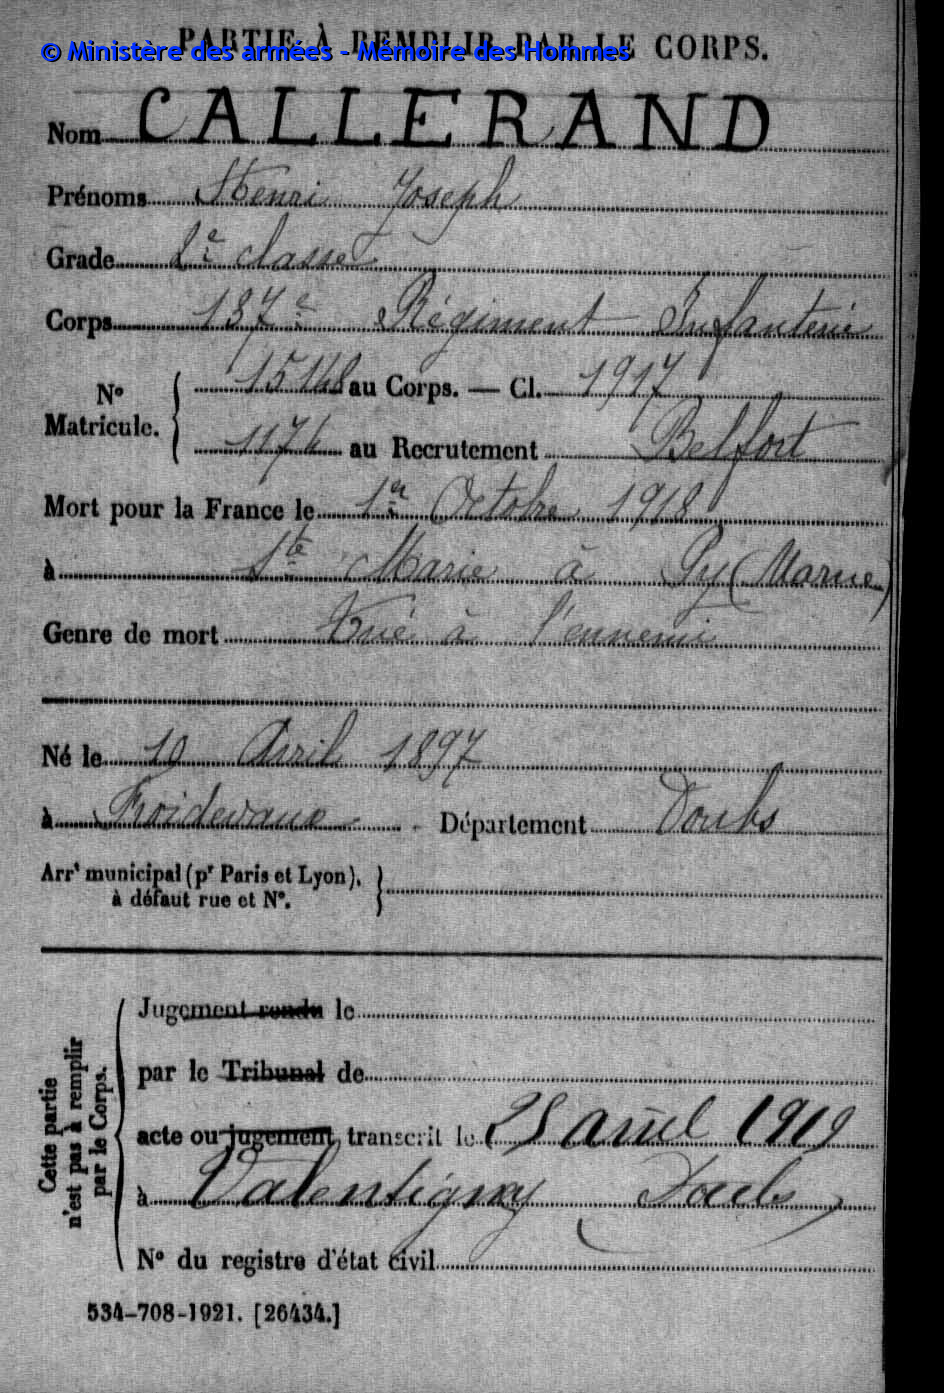 PARTIE À REMPLIR PAR LE CORPS.
© Ministère des armées - Mémoire des Hommes
Nom CALLERAND
Prénoms Henri Joseph
Grade 2e classe
Corps 137e Régiment Infanterie
No Matricule. { 15148 au Corps. — Cl. 1917
1174 au Recrutement Belfort
Mort pour la France le 1er Octobre 1918
à Ste Marie à Py (Marne)
Genre de mort Tué à l'ennemi
Né le 10 Avril 1897
à Froidevaux Département Doubs
Arrt municipal (pr Paris et Lyon),
à défaut rue et No.
Cette partie
n'est pas à remplir
par le Corps.
Jugement rendu le
par le Tribunal de
acte ou jugement transcrit le 25 avril 1919
à Valentigney (Doubs)
No du registre d'état civil
534-708-1921. [26434.]